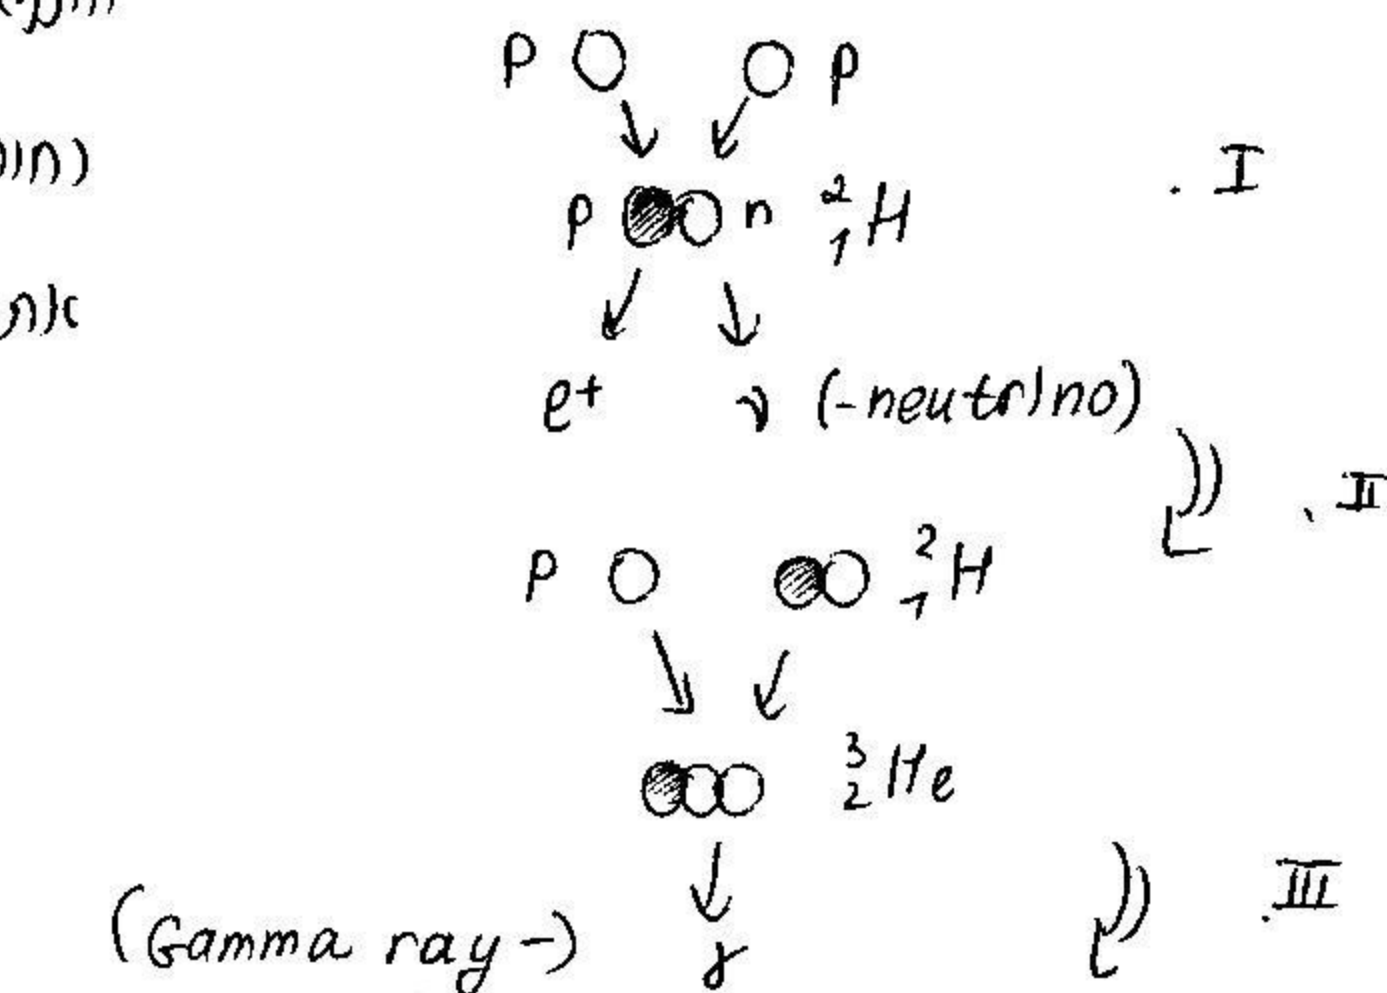 p p
. I
p n ²₁H
e+ ν (-neutrino)
. II
p ²₁H
³₂He
. III
(Gamma ray -) γ